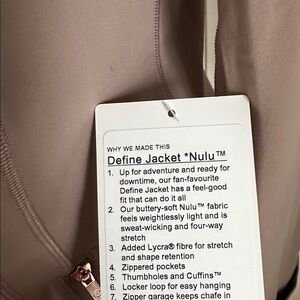 WHY WE MADE THIS
Define Jacket *Nulu™
1. Up for adventure and ready for
downtime, our fan-favourite
Define Jacket has a feel-good
fit that can do it all
2. Our buttery-soft Nulu™ fabric
feels weightlessly light and is
sweat-wicking and four-way
stretch
3. Added Lycra® fibre for stretch
and shape retention
4. Zippered pockets
5. Thumbholes and Cuffins™
6. Locker loop for easy hanging
7. Zipper garage keeps chafe in